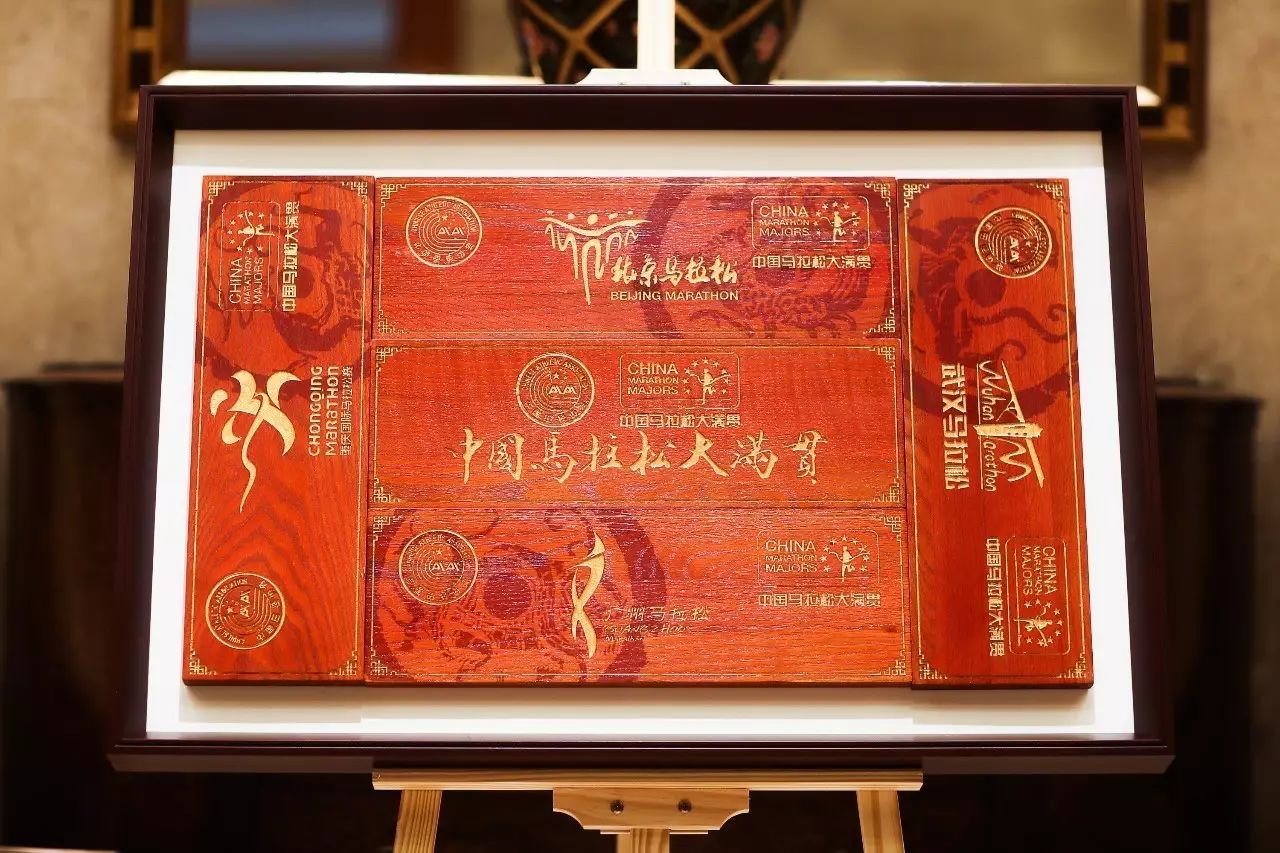 CHINA
MARATHON
MAJORS
中国马拉松大满贯
CHONGQING
MARATHON
重庆国际马拉松赛
北京马拉松
BEIJING MARATHON
CHINA
MARATHON
MAJORS
中国马拉松大满贯
CHINA
MARATHON
MAJORS
中国马拉松大满贯
中國馬拉松大满贯
广州马拉松
GUANGZHOU
MARATHON
CHINA
MARATHON
MAJORS
中国马拉松大满贯
Wuhan
Marathon
武汉马拉松
CHINA
MARATHON
MAJORS
中国马拉松大满贯